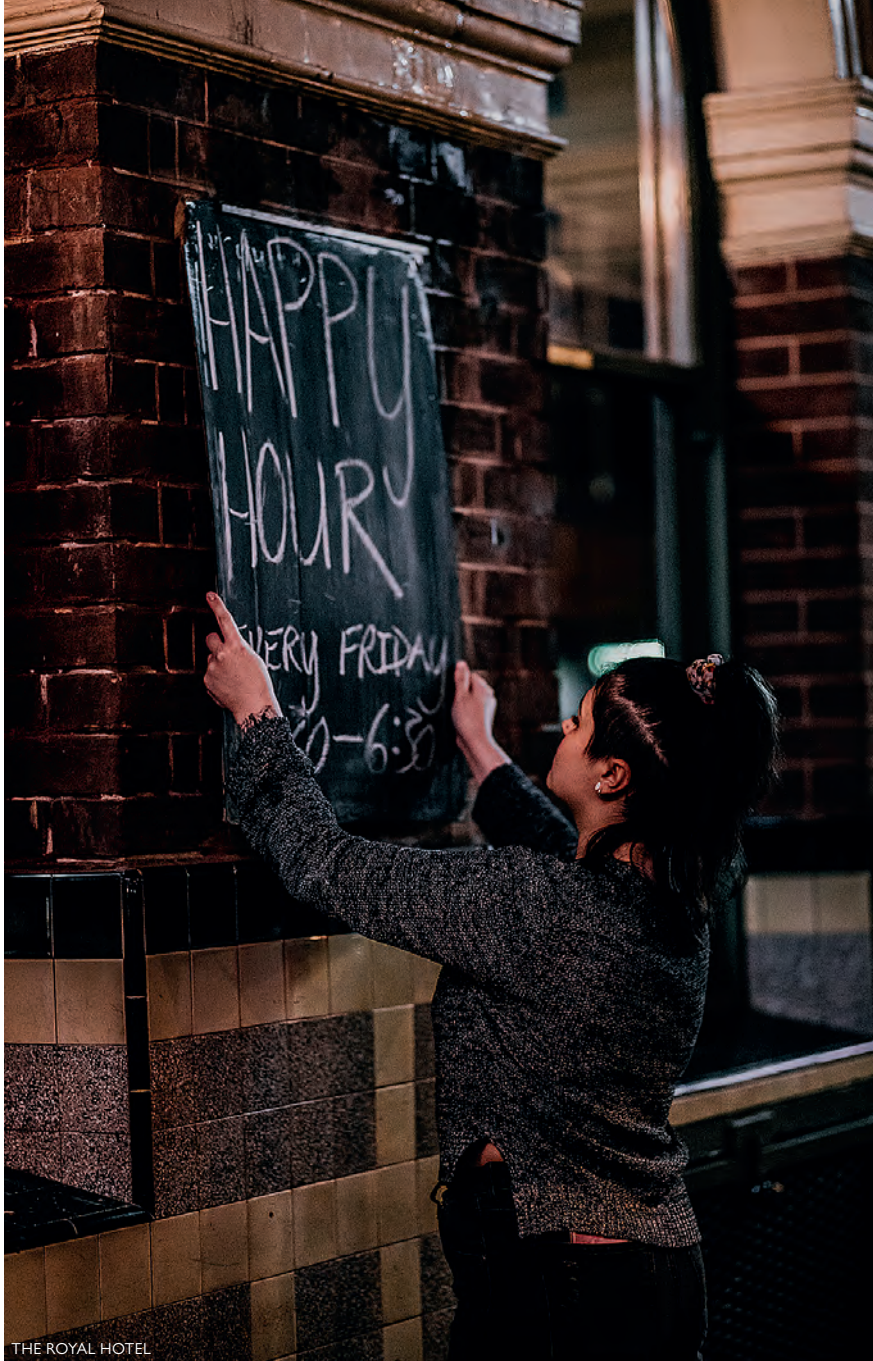 HAPPY
HOUR
EVERY FRIDAY
-6:30
THE ROYAL HOTEL